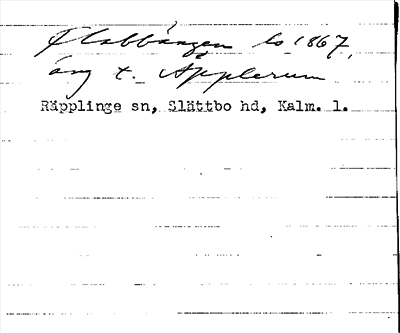 Flabbängen ls 1867,
äng t. Äpplerum
Räpplinge sn, Slättbo hd, Kalm. l.